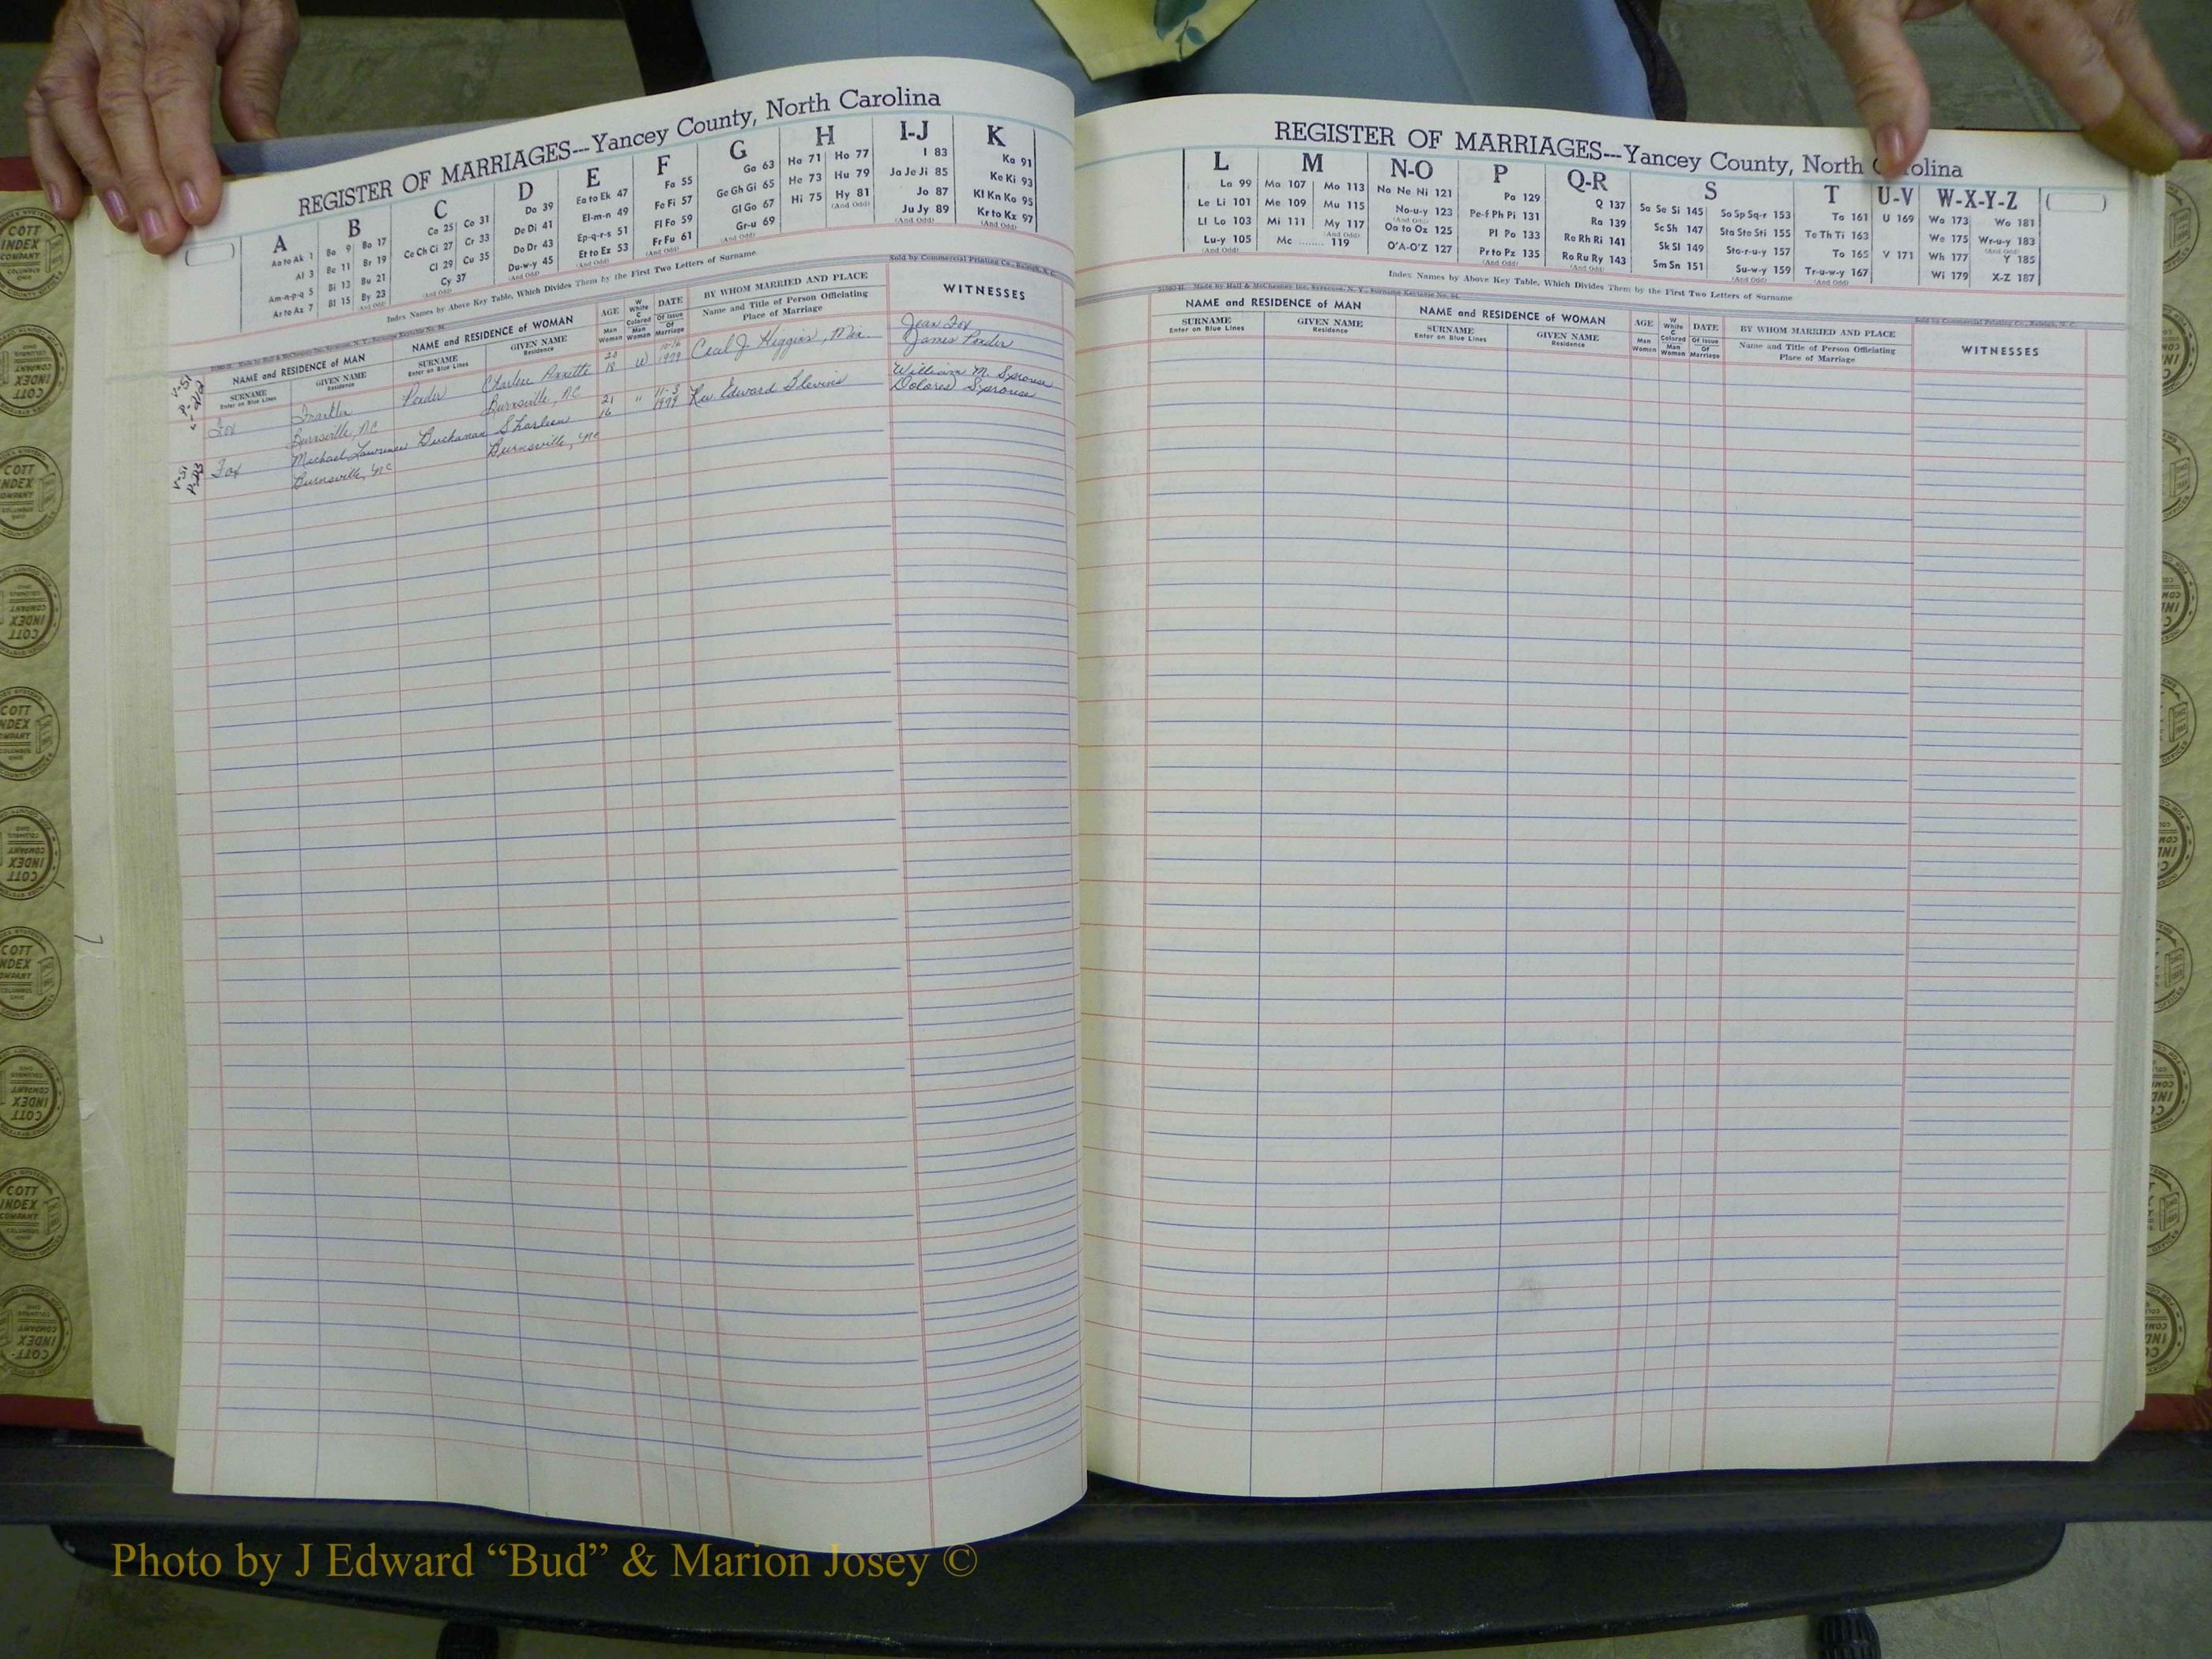 REGISTER OF MARRIAGES---Yancey County, North Carolina
A B C D E F G H I-J K
Aa to Ak 1 Ba 9 Bo 17 Ca 25 Co 31 Da 39 Ea to Ek 47 Fa 55 Ga 63 Ha 71 Ho 77 I 83 Ka 91
Al 3 Be 11 Br 19 Ce Ch Ci 27 Cr 33 De Di 41 El-m-n 49 Fe Fi 57 Ge Gh Gi 65 He 73 Hu 79 Ja Je Ji 85 Ke Ki 93
Am-n-p-q 5 Bi 13 Bu 21 Cl 29 Cu 35 Do Dr 43 Ep-q-r-s 51 Fl Fo 59 Gl Go 67 Hi 75 Hy 81 Jo 87 Kl Kn Ko 95
Ar to Az 7 Bl 15 By 23 Cy 37 Du-w-y 45 Et to Ez 53 Fr Fu 61 Gr-u 69 Ju Jy 89 Kr to Kz 97
(And Odd) (And Odd) (And Odd) (And Odd) (And Odd) (And Odd) (And Odd) (And Odd) (And Odd)
Index Names by Above Key Table, Which Divides Them by the First Two Letters of Surname
Sold by Commercial Printing Co., Raleigh, N. C.
NAME and RESIDENCE of MAN NAME and RESIDENCE of WOMAN AGE W White C Colored DATE Of Issue BY WHOM MARRIED AND PLACE WITNESSES
SURNAME GIVEN NAME SURNAME GIVEN NAME Man Man Of Name and Title of Person Officiating
Enter on Blue Lines Residence Enter on Blue Lines Residence Woman Woman Marriage Place of Marriage
Fox Franklin Ponder Charlene Annette 20 W 10-16 Cecil J. Higgins, Min. Jean Fox
Burnsville, NC Burnsville, NC 18 1979 James Ponder
V-51
Fox Michael Lawrence Buchanan Sharleen 21 " 11-3 Rev. Edward Blevins William M. Sprouse
Burnsville, NC Burnsville, NC 16 1979 Dolores Sprouse
REGISTER OF MARRIAGES---Yancey County, North C rolina
L M N-O P Q-R S T U-V W-X-Y-Z
La 99 Ma 107 Mo 113 Na Ne Ni 121 Pa 129 Q 137 Sa Se Si 145 So Sp Sq-r 153 Ta 161 U 169 Wa 173 Wo 181
Le Li 101 Me 109 Mu 115 No-u-y 123 Pe-f Ph Pi 131 Ra 139 Sc Sh 147 Sta Ste Sti 155 Te Th Ti 163 We 175 Wr-u-y 183
Ll Lo 103 Mi 111 My 117 Oa to Oz 125 Pl Po 133 Re Rh Ri 141 Sk Sl 149 Sto-r-u-y 157 To 165 V 171 Wh 177 Y 185
Lu-y 105 Mc ........ 119 O'A-O'Z 127 Pr to Pz 135 Ro Ru Ry 143 Sm Sn 151 Su-w-y 159 Tr-u-w-y 167 Wi 179 X-Z 187
(And Odd) (And Odd) (And Odd) (And Odd) (And Odd) (And Odd) (And Odd) (And Odd)
Index Names by Above Key Table, Which Divides Them by the First Two Letters of Surname
Made by Hall & McChesney Inc. Syracuse, N. Y.
Sold by Commercial Printing Co., Raleigh, N. C.
NAME and RESIDENCE of MAN NAME and RESIDENCE of WOMAN AGE W White C Colored DATE Of Issue BY WHOM MARRIED AND PLACE WITNESSES
SURNAME GIVEN NAME SURNAME GIVEN NAME Man Man Of Name and Title of Person Officiating
Enter on Blue Lines Residence Enter on Blue Lines Residence Woman Woman Marriage Place of Marriage
COTT
INDEX
COMPANY
COLUMBUS
OHIO
Photo by J Edward “Bud” & Marion Josey ©